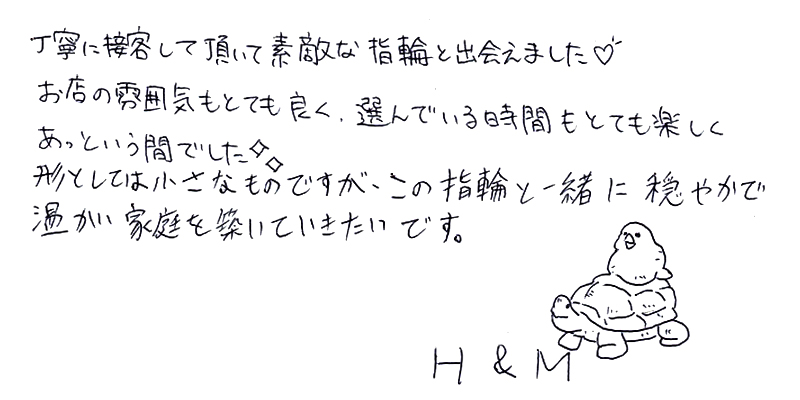 丁寧に接客して頂いて素敵な指輪と出会えました♡
お店の雰囲気もとても良く、選んでいる時間もとても楽しく
あっという間でした✧✧
形としては小さなものですが、この指輪と一緒に穏やかで
温かい家庭を築いていきたいです。
H & M